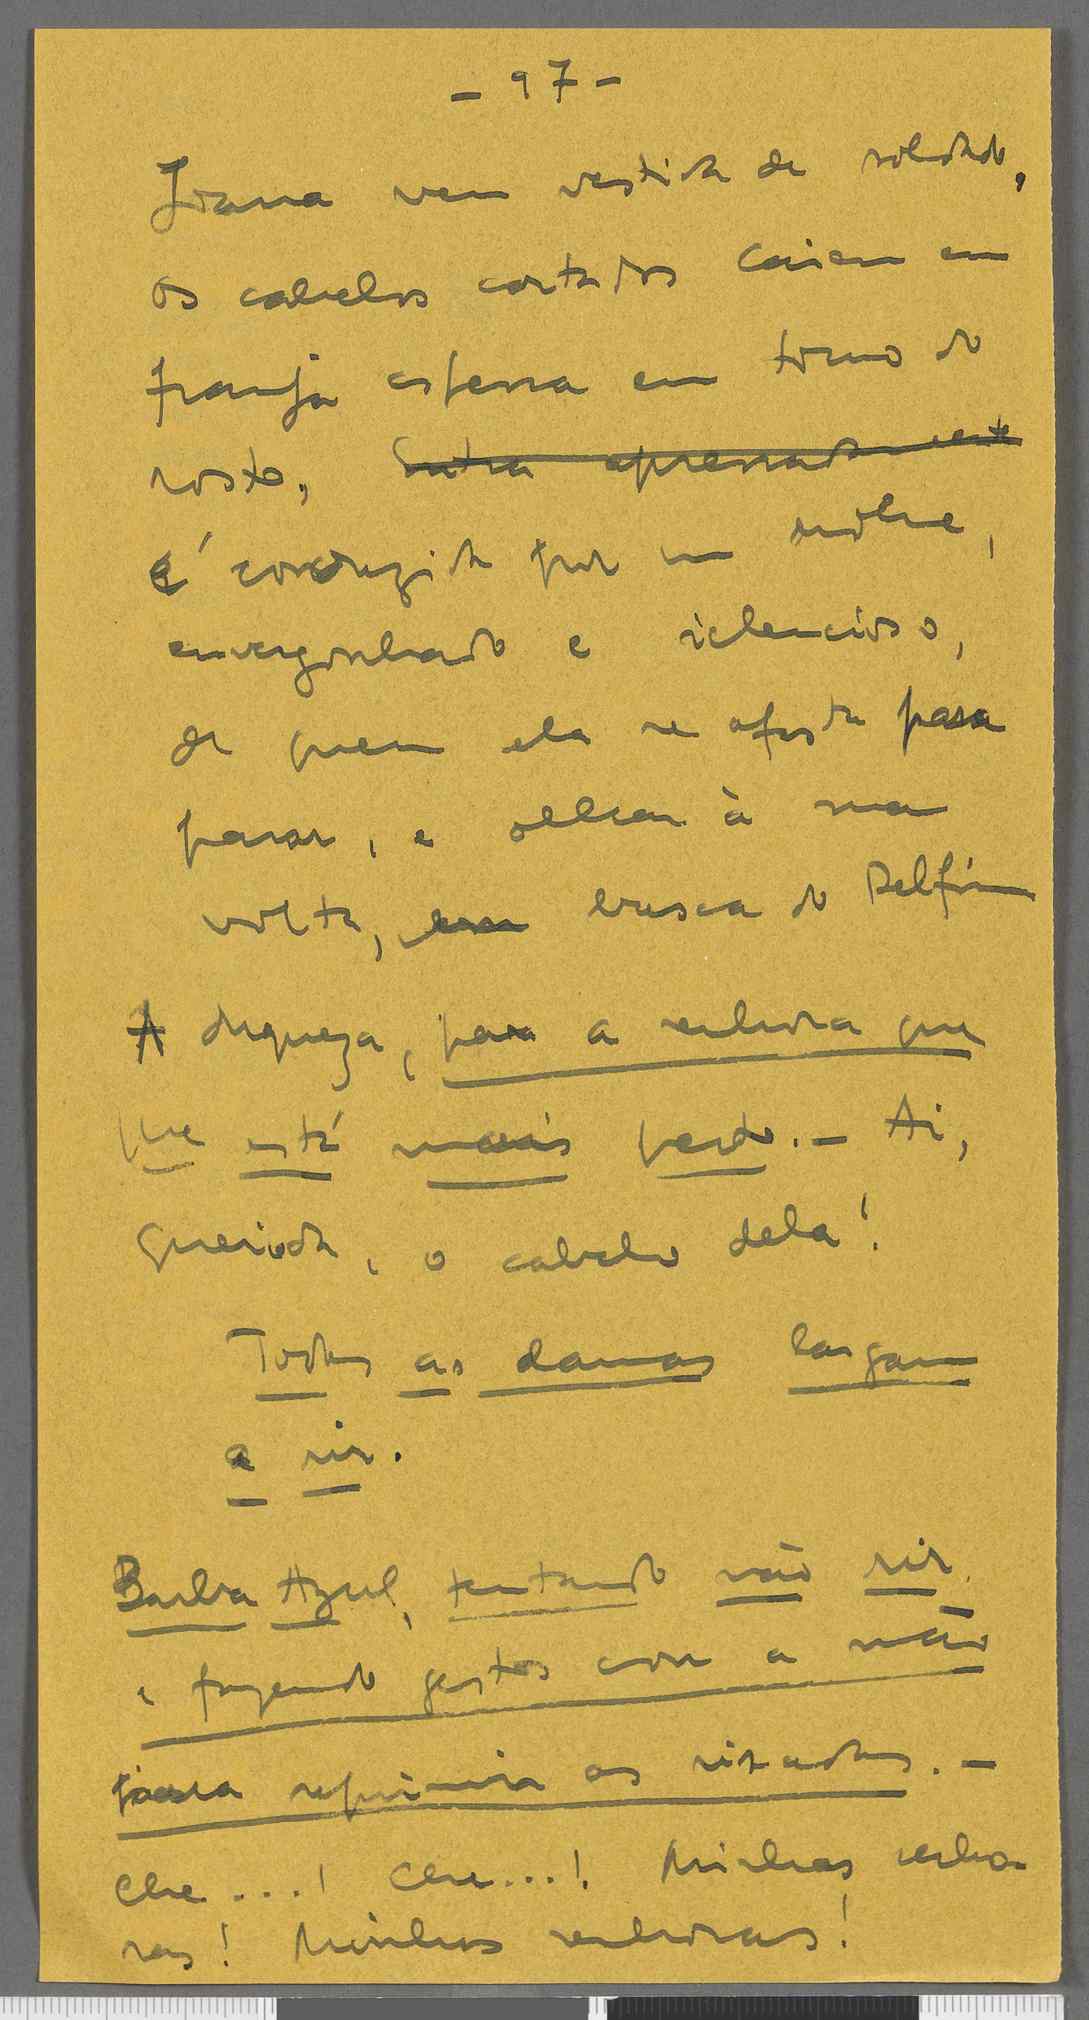 - 97 -
Joana vem vestida de soldado,
os cabelos cortados caiem em
franja espessa em torno do
rosto, Entra apressadamente
é conduzida por um nobre,
envergonhado e silencioso,
de quem ela se afasta para
parar, e olhar à sua
volta, em busca do Delfim
A duqueza, para a senhora que
que está mais perto. - Ai,
querida, o cabelo dela!
Todas as damas largam
a rir.
Barba Azul, tentando não rir,
e fazendo gestos com a mão
para reprimir as risadas. -
Che...! Che...! Minhas senho-
ras! Minhas senhoras!